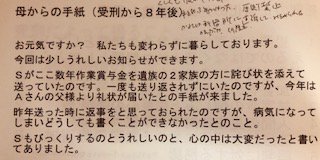 母からの手紙（受刑から８年後）
お元気ですか？ 私たちも変わらずに暮らしております。
今回は少しうれしいお知らせができます。
Ｓがここ数年作業賞与金を遺族の２家族の方に詫び状を添えて
送っていたのです。一度も送り返されずにいたのですが、今年は
Ａさんの父様より礼状が届いたとの手紙が来ました。
昨年送った時に返事をと思っておられたのですが、病気になって
しまいどうしても書くことができなかったとのこと。
Ｓもびっくりするのとうれしいのと、心の中は大変だったと書い
てありました。